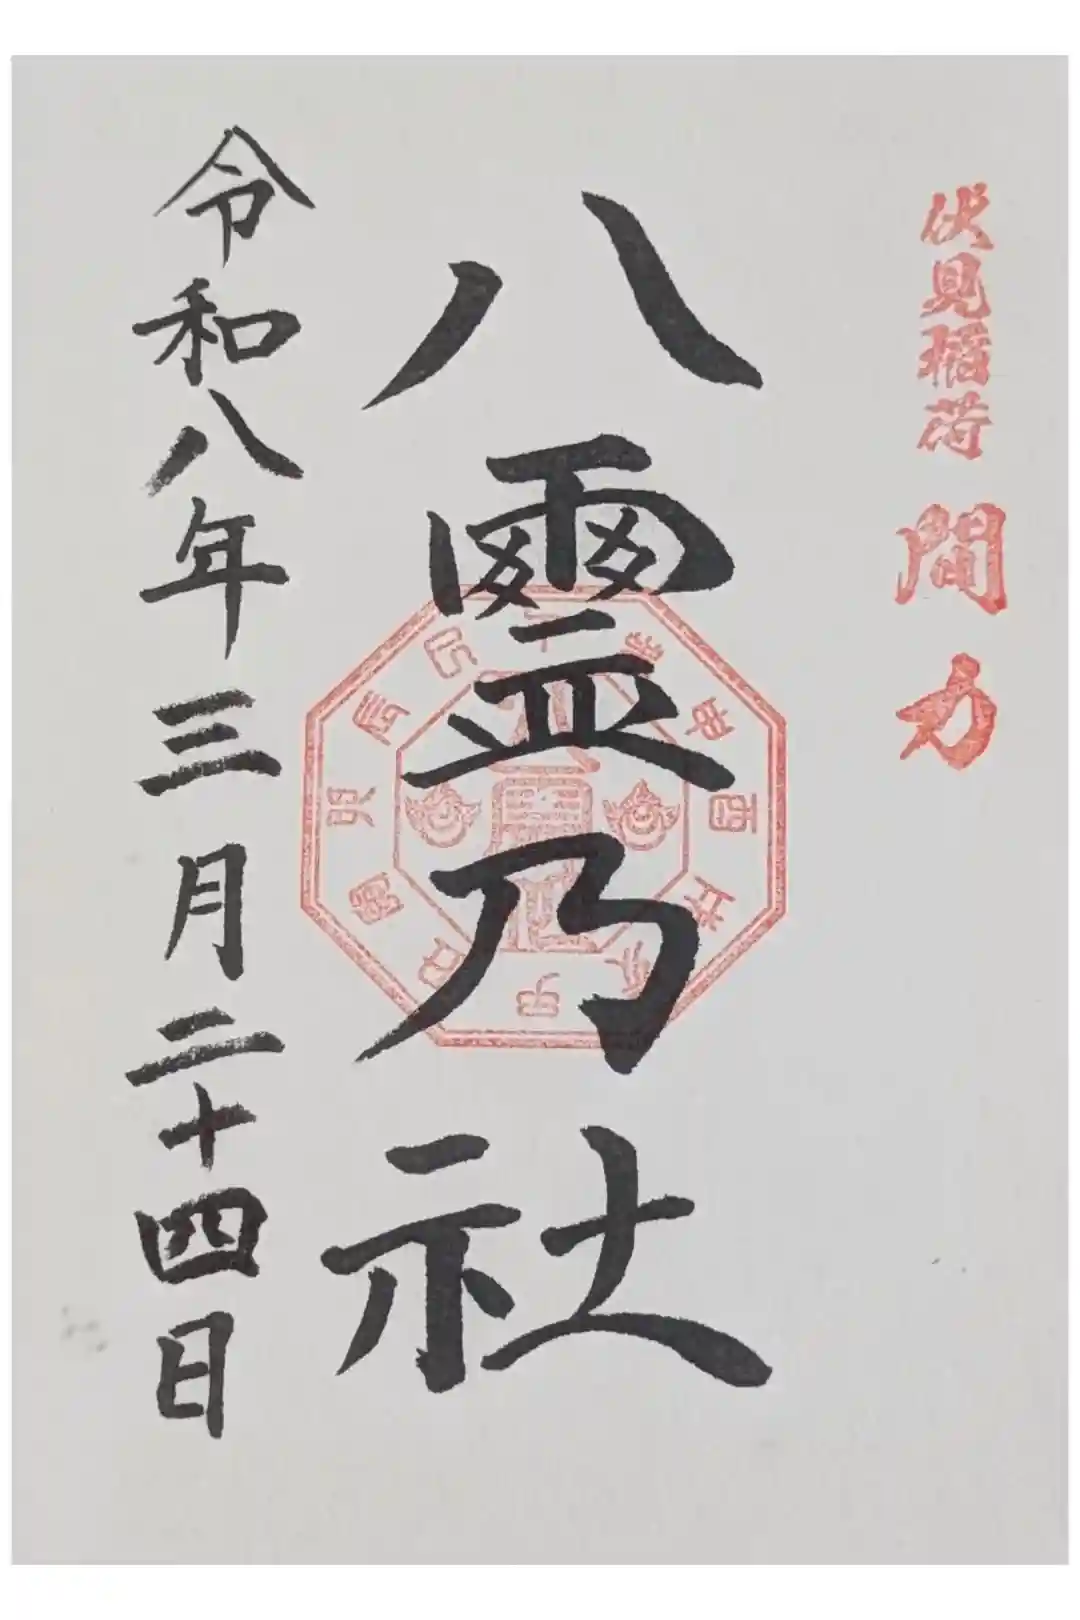 伏見稲荷 間力
八靈乃社
令和八年三月二十四日